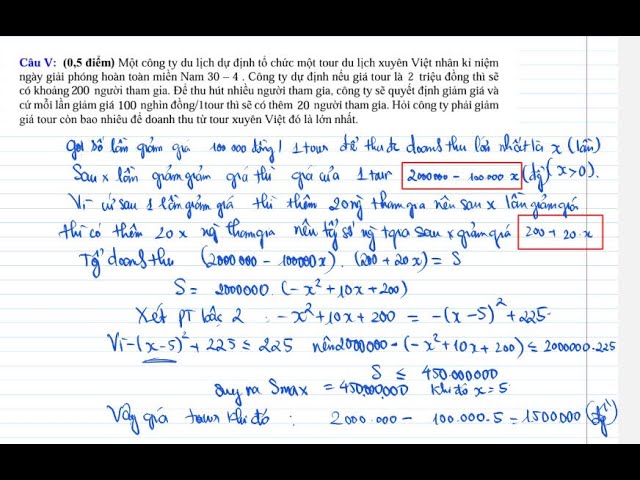 Câu V: (0,5 điểm) Một công ty du lịch dự định tổ chức một tour du lịch xuyên Việt nhân kỉ niệm
ngày giải phóng hoàn toàn miền Nam 30 – 4 . Công ty dự định nếu giá tour là 2 triệu đồng thì sẽ
có khoảng 200 người tham gia. Để thu hút nhiều người tham gia, công ty sẽ quyết định giảm giá và
cứ mỗi lần giảm giá 100 nghìn đồng/1tour thì sẽ có thêm 20 người tham gia. Hỏi công ty phải giảm
giá tour còn bao nhiêu để doanh thu từ tour xuyên Việt đó là lớn nhất.
Gọi số lần giảm giá 100 000 đồng/ 1 tour để thu đc doanh thu lớn nhất là x (lần)
Sau x lần giảm giảm giá thì giá của 1 tour 2000000 - 100000 x (đg) (x>0).
Vì cứ sau 1 lần giảm giá thì thêm 20 ng tham gia nên sau x lần giảm giá
thì có thêm 20 x ng tham gia nên tổng số ng tgia sau x giảm giá 200 + 20.x
Tổng doanh thu (2000000 - 100000x). (200 + 20x) = S
S = 2000000. (-x² + 10x + 200)
Xét PT bậc 2 : -x² + 10x + 200 = -(x-5)² + 225.
Vì -(x-5)² + 225 ≤ 225 nên 2000000 . (-x² + 10x + 200) ≤ 2000000.225
S ≤ 450.000000
suy ra Smax = 450.000.000 khi đó x = 5
Vậy giá tour khi đó : 2000.000 - 100.000.5 = 1500000 (đg)